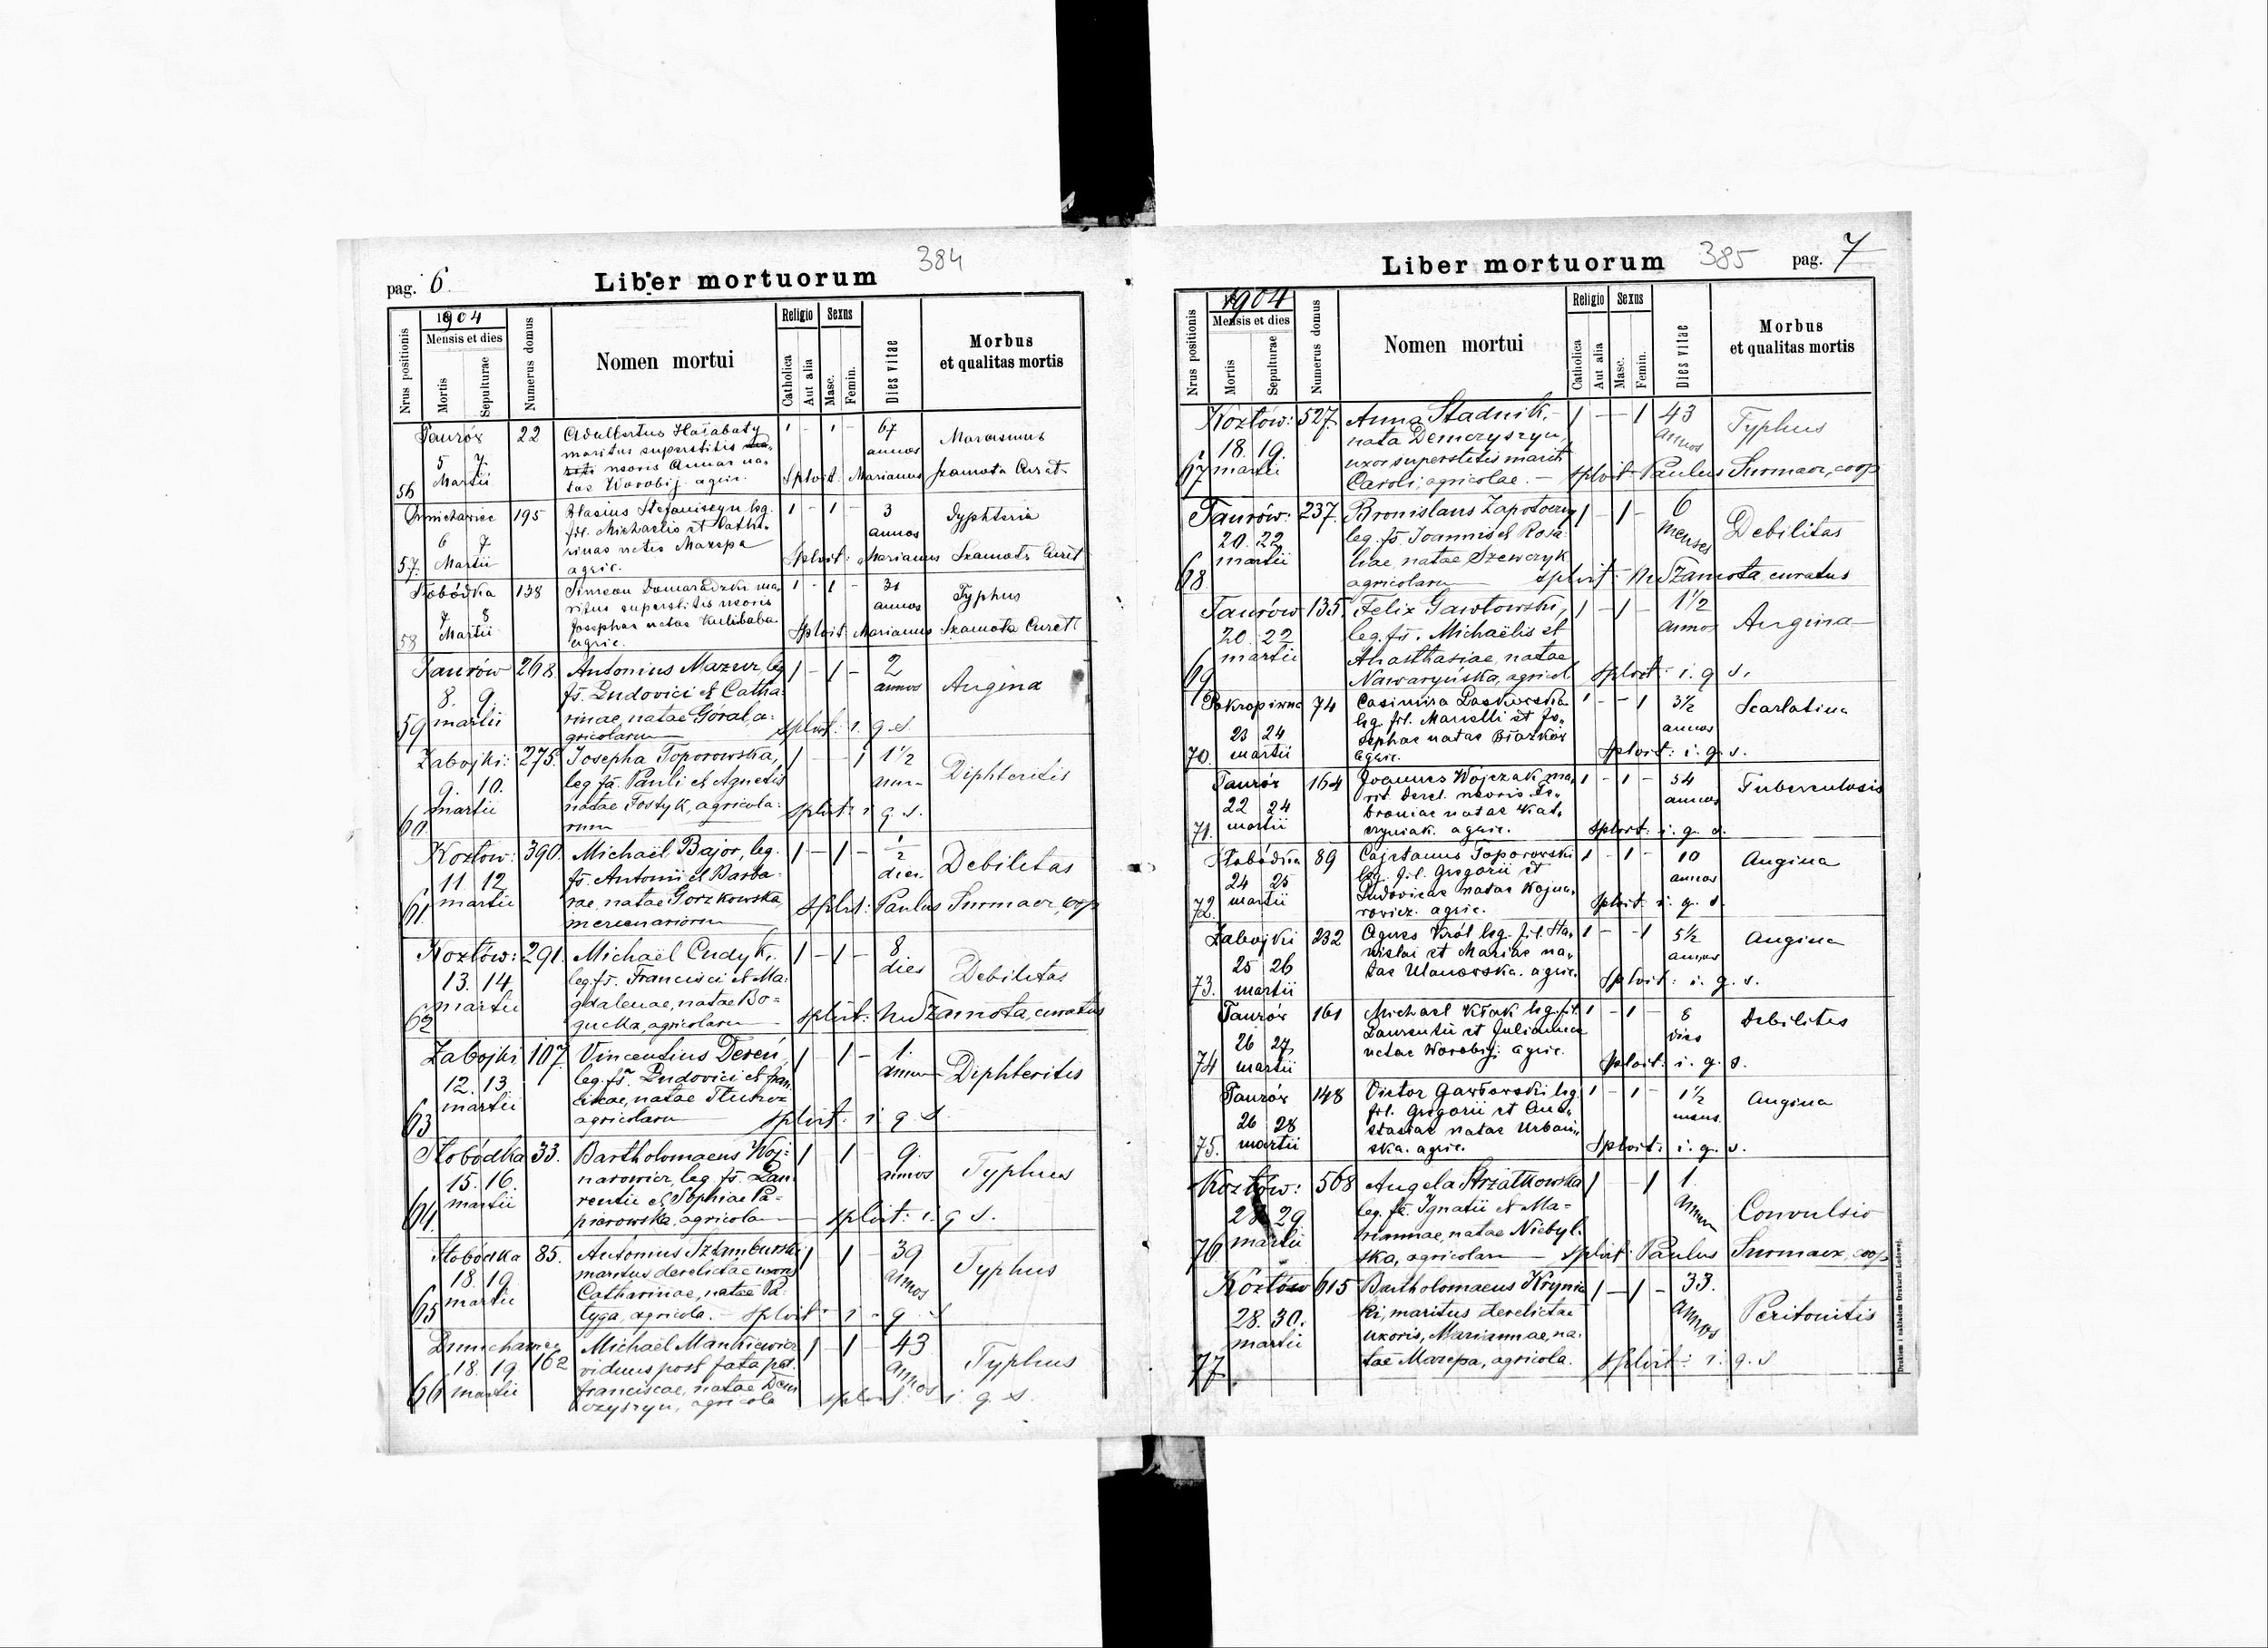 384
pag. 6.
Liber mortuorum
Nrus positionis
1904
Mensis et dies
Mortis
Sepulturae
Numerus domus
Nomen mortui
Religio
Catholica
Aut alia
Sexus
Masc.
Femin.
Dies vitae
Morbus
et qualitas mortis
Taurów 22 Adalbertus Hałabaty 1 - 1 - 67 Marasmus
maritus superstitis annos
5 7 uxoris Annae na-
56 Martii tae Worobij. agric. Splvit: Marianus Szamota Curat.
Dmuchawiec 195 Blasius Stefaniszyn leg. 1 - 1 - 3 Dyphteria
fil. Michaelis et Catha- annos
6 7 rinae natae Mazepa
57. Martii agric. Splvit: Marianus Szamota Curat
Słobódka 138 Simeon Domaradzki ma- 1 - 1 - 31 Typhus
ritus superstitis uxoris annos
7 8 Josephae natae Kulibaba
58 Martii agric. Splvit: Marianus Szamota Curat
Taurów 268. Antonius Mazur, leg 1 - 1 - 2 Angina
8. 9. fs. Ludovici et Catha- annos
59 martii rinae, natae Góral, a-
gricolarum splvit: i. q. s.
Zabojki: 275. Josepha Toporowska, 1 - - 1 1½ Diphteritis
9. 10. leg fa. Pauli et Agnetis ann-
martii natae Tostyk, agricola-
60 rum splvit: i q. s.
Kozłów: 390. Michaël Bajor, leg. 1 - 1 - ½ Debilitas
11. 12 fs. Antonii et Barba- diei.
61. martii rae, natae Gorzkowska, splvit: Paulus Surmacz, coop
mercenariorum
Kozłów: 291. Michaël Cudyk, 1 - 1 - 8 Debilitas
13. 14. leg. fs. Francisci et Ma- dies
martii gdalenae, natae Bo-
62 gucka, agricolarum splvit: M Szamota, curatus
Zabojki 107. Vincentius Dereń, 1 1 - 1. Diphteritis
12. 13. leg. fs. Ludovici et Fran- annum
martii ciscae, natae
63 agricolarum splvit: i q s.
Słobódka 33. Bartholomaeus Woj- 1 1 9. Typhus
15. 16. narowicz, leg. fs. Lau- annos
martii rentii et Sophiae Pa-
64. piarowska, agricola splvit: i. q s.
Słobódka 85. Antonius Sztamburski 1 1 - 39 Typhus
18. 19. maritus derelictae uxoris annos
martii Catharinae, natae Pa-
65 tyga, agricola. - splvit: i - q - s
Dmuchawiec Michaël Mankiewicz 1 - 1 - 43 Typhus
18. 19 162 viduus post fata annos
66 martii Franciscae, natae Dem
czyszyn, agricola splvit: i. q. s.
385
pag. 7
Liber mortuorum
Nrus positionis
1904
Mensis et dies
Mortis
Sepulturae
Numerus domus
Nomen mortui
Religio
Catholica
Aut alia
Sexus
Masc.
Femin.
Dies vitae
Morbus
et qualitas mortis
Kozłów: 527. Anna Stadnik, 1 - - 1 43 Typhus
nata Demczyszyn, annos
18. 19. uxor superstitis mariti
67 martii Caroli, agricolae. - splvit: Paulus Surmacz, coop
Taurów: 237. Bronislaus Zapotoczny 1 - 1 - 6 Debilitas
20. 22 leg. fs. Joannis et Rosa- menses
martii liae, natae Szewczyk
68 agricolarum splvit: M Szamota, curatus
Taurów 135. Felix Gawłowski, 1 - 1 - 1½ Angina
20. 22 leg. fs. Michaëlis et annos
martii Anasthasiae, natae
69 Nawaryńska, agricol splvit: i. q s.
Pokropiwna 74 Casimira Laskowska 1 - - 1 3½ Scarlatina
leg. fil. Marcelli et Jo- annos
23 24 sephae natae Błażków
70. martii agric. Splvit: i. q. s.
Taurów 164 Joannes Wójczak ma- 1 - 1 - 54 Tuberculosis
22 24 rit. derel. uxoris Fe- annos
broniae natae Kat-
71. martii czyniak. agric. Splvit: i. q. s.
Słobódka 89 Cajetanus Toporowski 1 - 1 - 10 Angina
24 25 leg. fil. Gregorii et annos
martii Ludovicae natae Wojna-
72. rowicz. agric. Splvit: i. q. s.
Zabojki 232 Agnes Król leg. fil. Sta- 1 - - 1 5½ Angina
25 26 nislai et Mariae na- annos
73. martii tae Ulanowska. agric. Splvit: i. q. s.
Taurów 161 Michael Kłak leg. fil. 1 - 1 - 8 Debilitas
26 27 Laurentii et Juliannae dies
74 martii natae Worobij. agric. Splvit: i. q. s.
Taurów 148 Victor Gawłowski leg. 1 - 1 - 1½ Angina
26 28 fil. Gregorii et Ana- mens.
stasiae natae Urbań-
75. martii ska. agric. Splvit: i. q. s.
Kozłów: 568 Angela Strzałkowska 1 - 1 1. Convulsio
28 29 leg. fa. Ignatii et Ma- annum
martii riannae, natae Niebyl-
76 ska, agricolarum splvit: Paulus Surmacz, coop
Kozłów 615 Bartholomaeus Krynic 1 - 1 - 33. Peritonitis
28. 30. ki, maritus derelictae annos
martii uxoris, Mariannae, na-
77. tae Mazepa, agricola. splvit: i. q. s
Drukiem i nakładem Drukarni Ludowej.